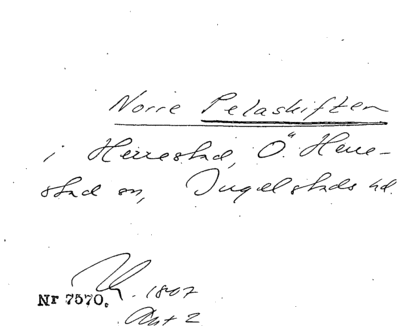 Norre Pelaskiften
i Herrestad, Ö. Herre-
stad sn, Ingelstads hd.
Nr 7570. 1807
Akt 2